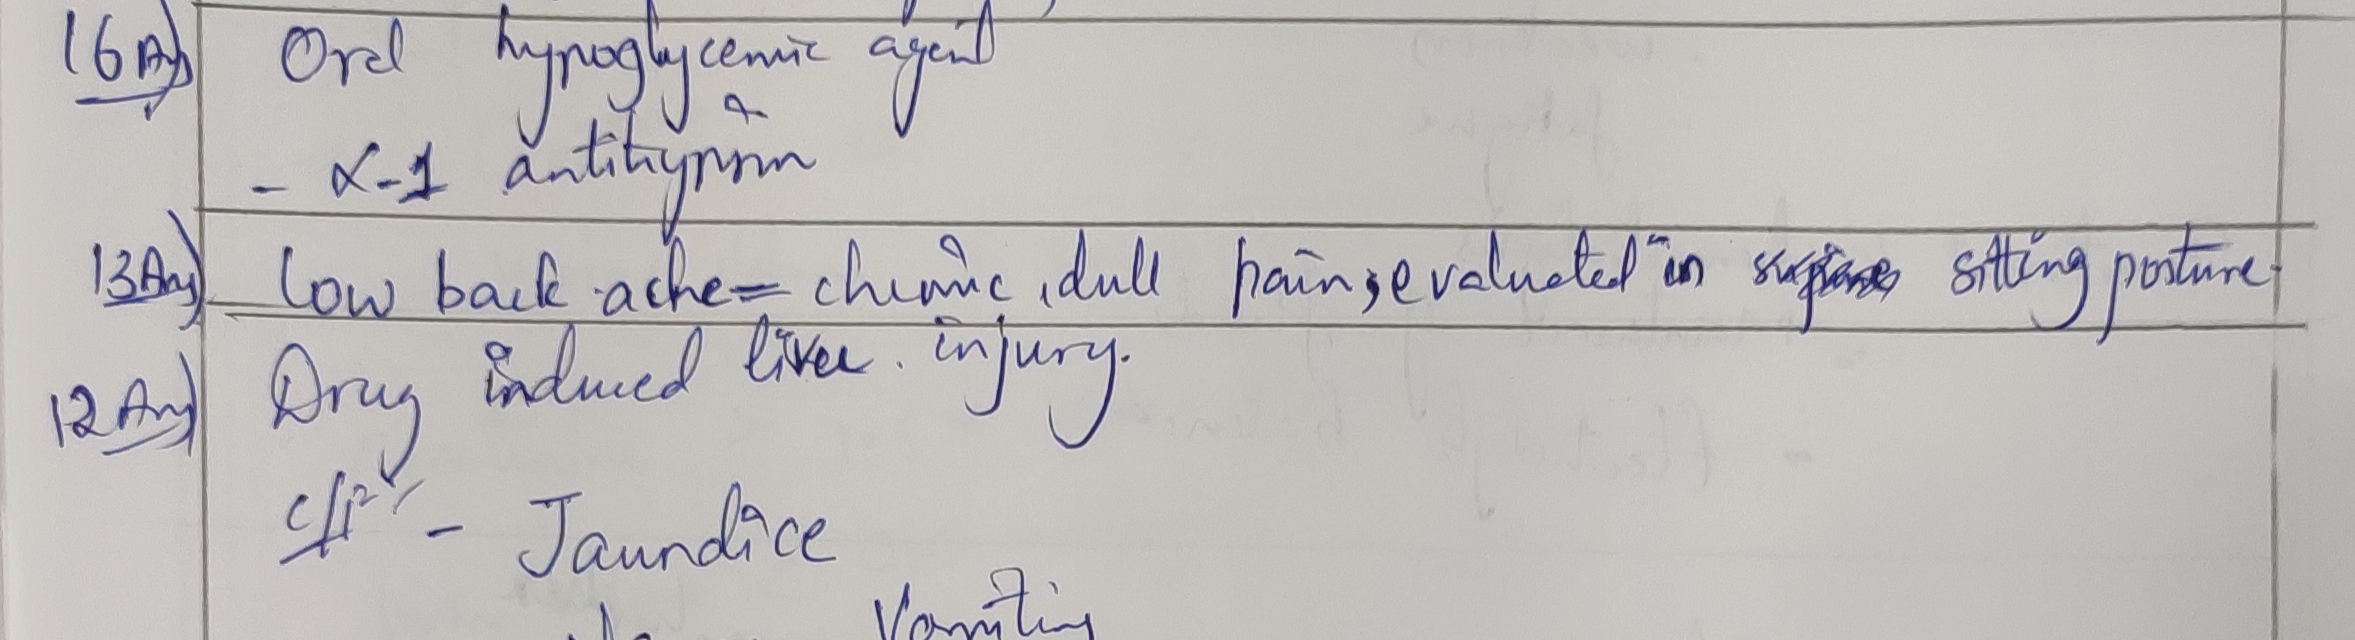 16 Ans) Oral hypoglycemic agent
- α-1 antitrypsin
13 Ans) Low back ache = chronic, dull pain, evaluated in sitting posture
12 Ans) Drug induced liver injury.
C/F - Jaundice
Vomiting